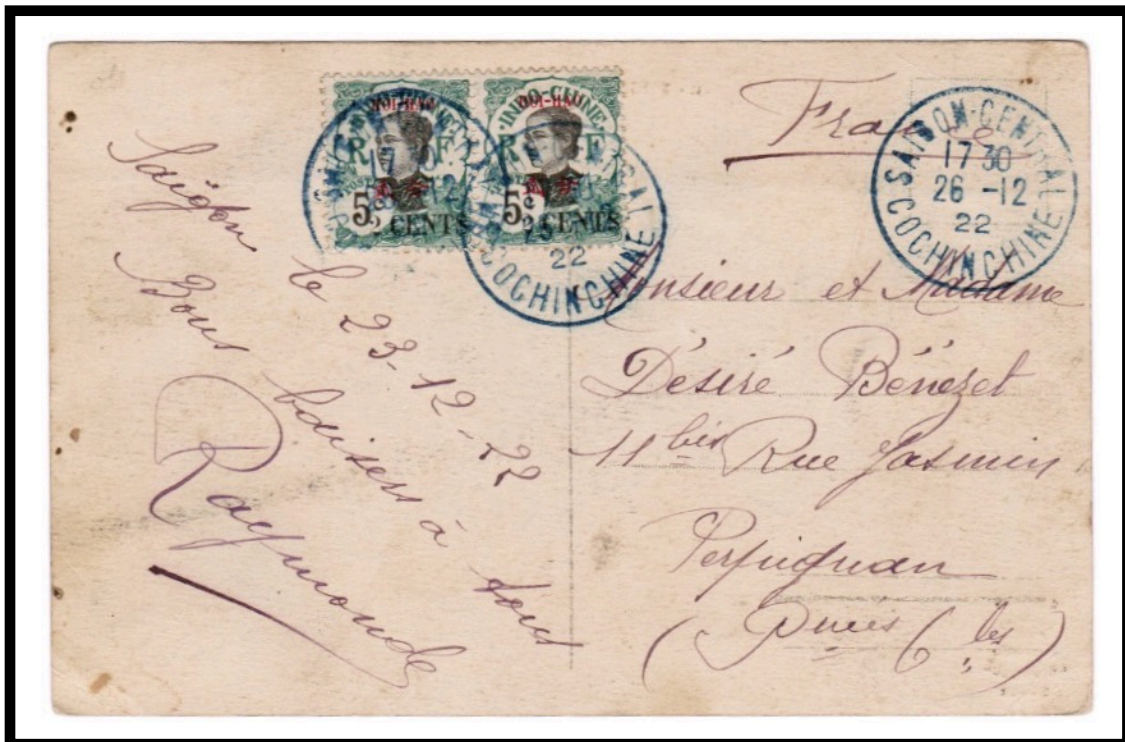 Saïgon le 23-12-22
Bons baisers à tous
Raymonde
INDO-CHINE
HOI-HAO
R F
5c
2 CENTS
INDO-CHINE
HOI-HAO
R F
5c
2 CENTS
22
COCHINCHINE
France
SAIGON-CENTRAL
17 30
26 -12
22
COCHINCHINE
Monsieur et Madame
Désiré Bénezet
11 bis Rue Jasmin
Perpignan